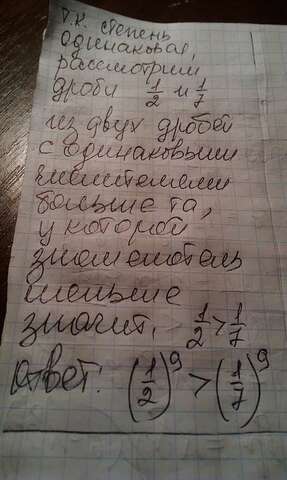 Т.к. степень
одинаковая,
рассмотрим
дроби 1/2 и 1/7
из двух дробей
с одинаковыми
числителями
больше та,
у которой
знаменатель
меньше
значит, 1/2 > 1/7
Ответ: (1/2)^9 > (1/7)^9